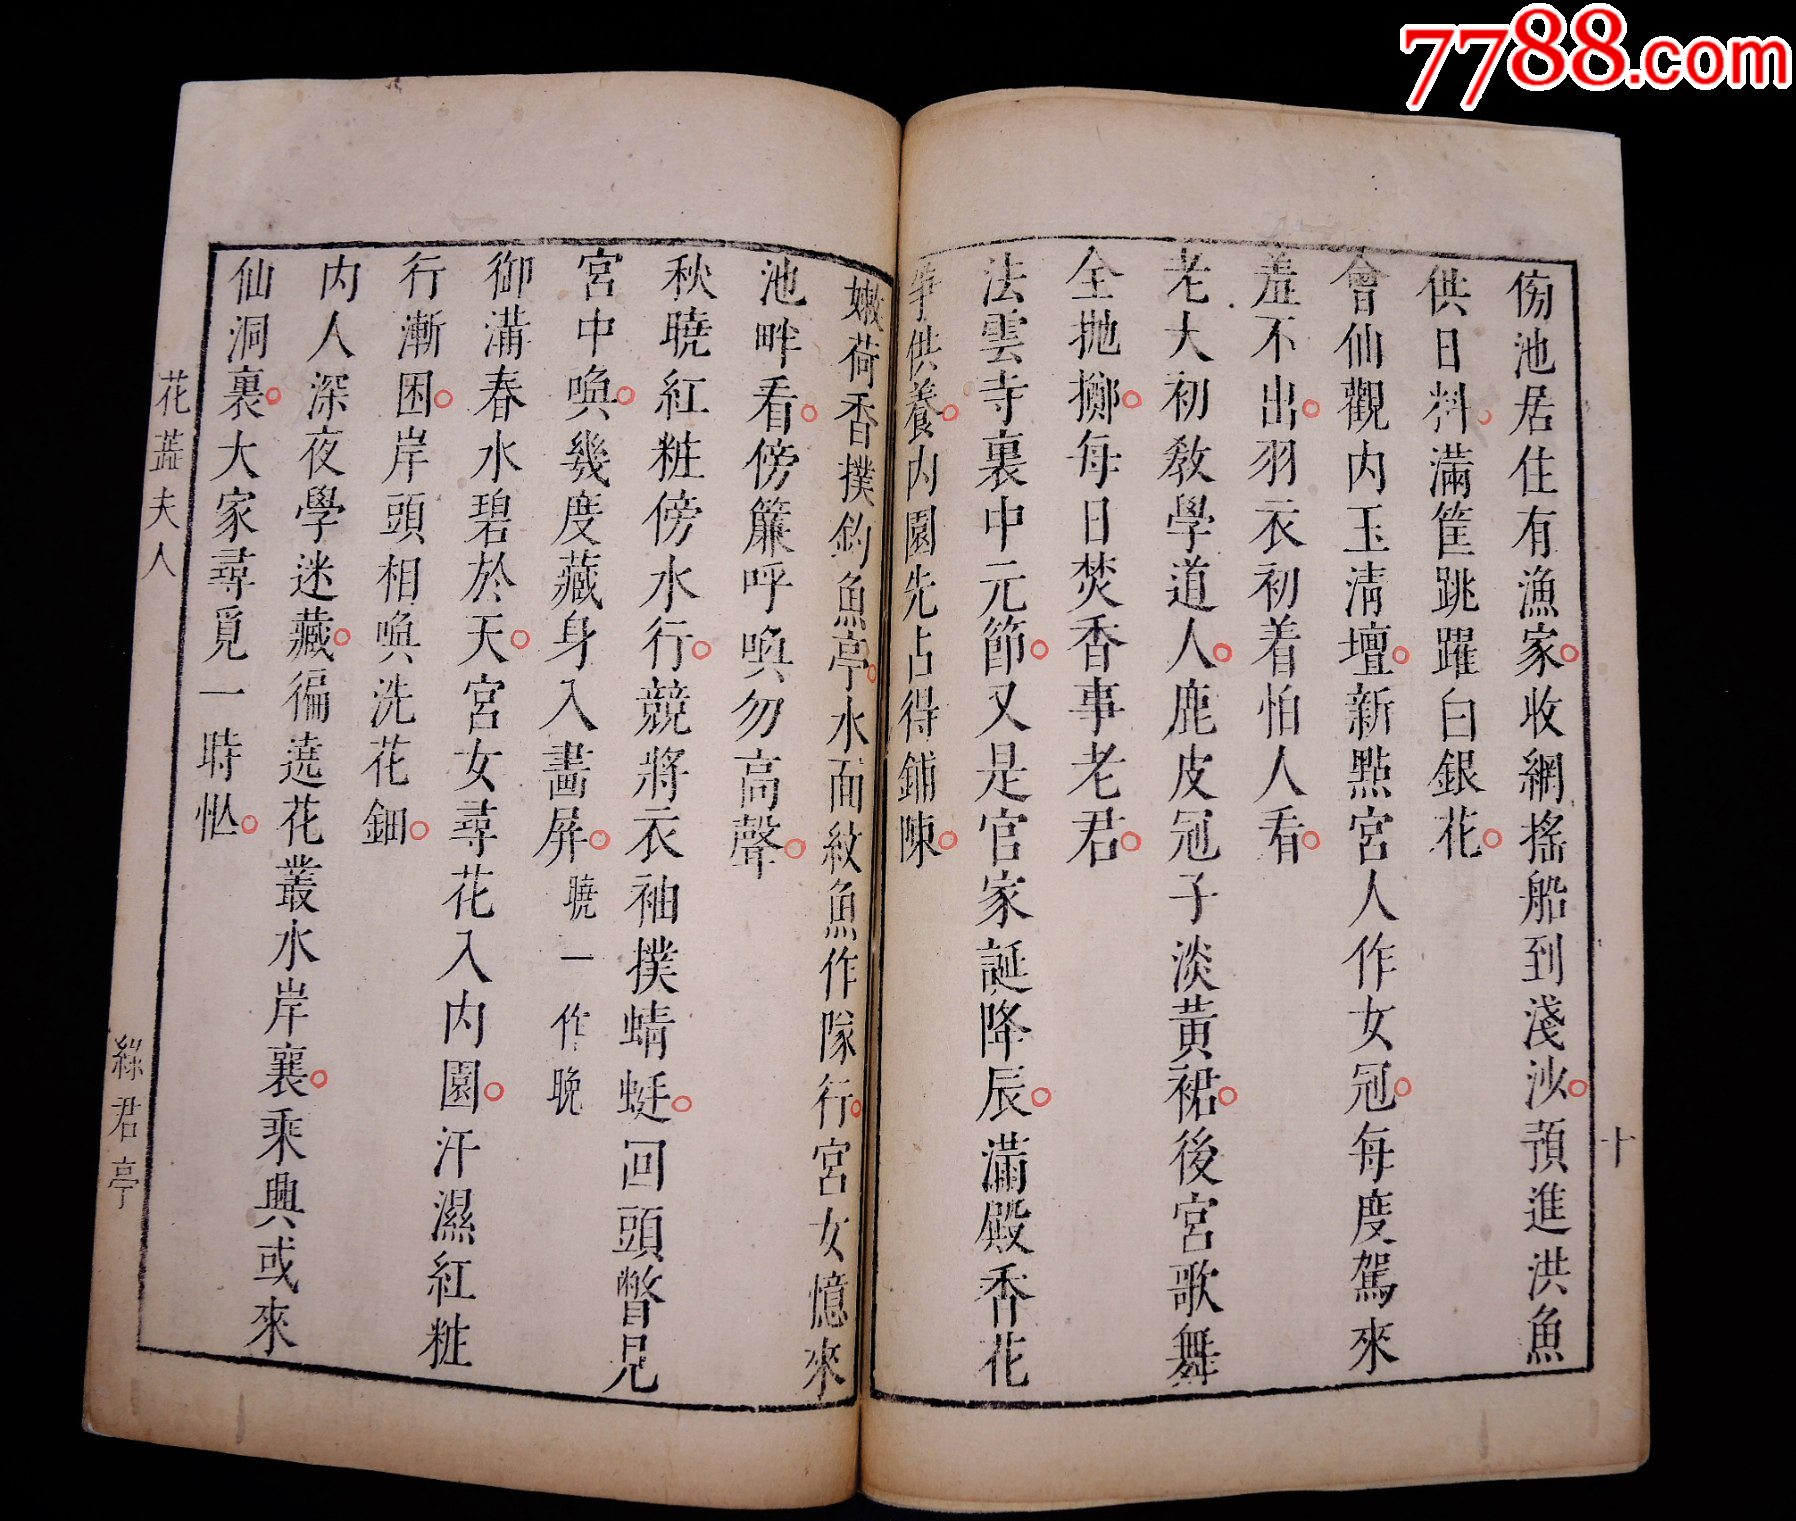 7788.com
傍池居住有漁家收網搖船到淺沙預進洪魚
供日料滿筐跳躍白銀花
會仙觀內玉清壇新點宮人作女冠每度駕來
羞不出羽衣初着怕人看
老大初教學道人鹿皮冠子淡黃裙後宮歌舞
全抛擲每日焚香事老君
法雲寺裏中元節又是官家誕降辰滿殿香花
爭供養內園先占得鋪陳
十
嫩荷香撲釣魚亭水面紋魚作隊行宮女憶來
池畔看傍簾呼喚勿高聲
秋曉紅粧傍水行競將衣袖撲蜻蜓回頭瞥見
宮中喚幾度藏身入畵屏曉一作晚
御溝春水碧於天宮女尋花入內園汗濕紅粧
行漸困岸頭相喚洗花鈿
內人深夜學迷藏徧遶花叢水岸襄乘興或來
仙洞裏大家尋覓一時忙
花蕋夫人
綠君亭